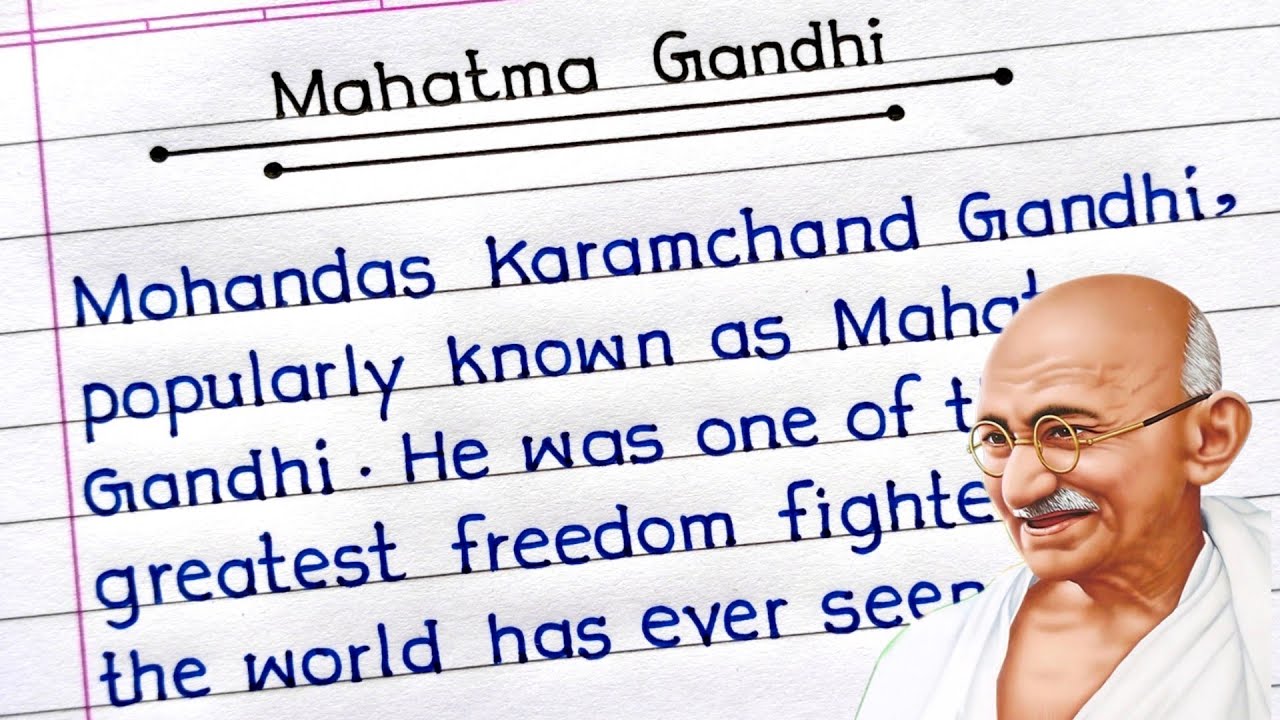 Mahatma Gandhi
Mohandas Karamchand Gandhi,
popularly known as
Gandhi. He was one of
greatest freedom
the world has ever